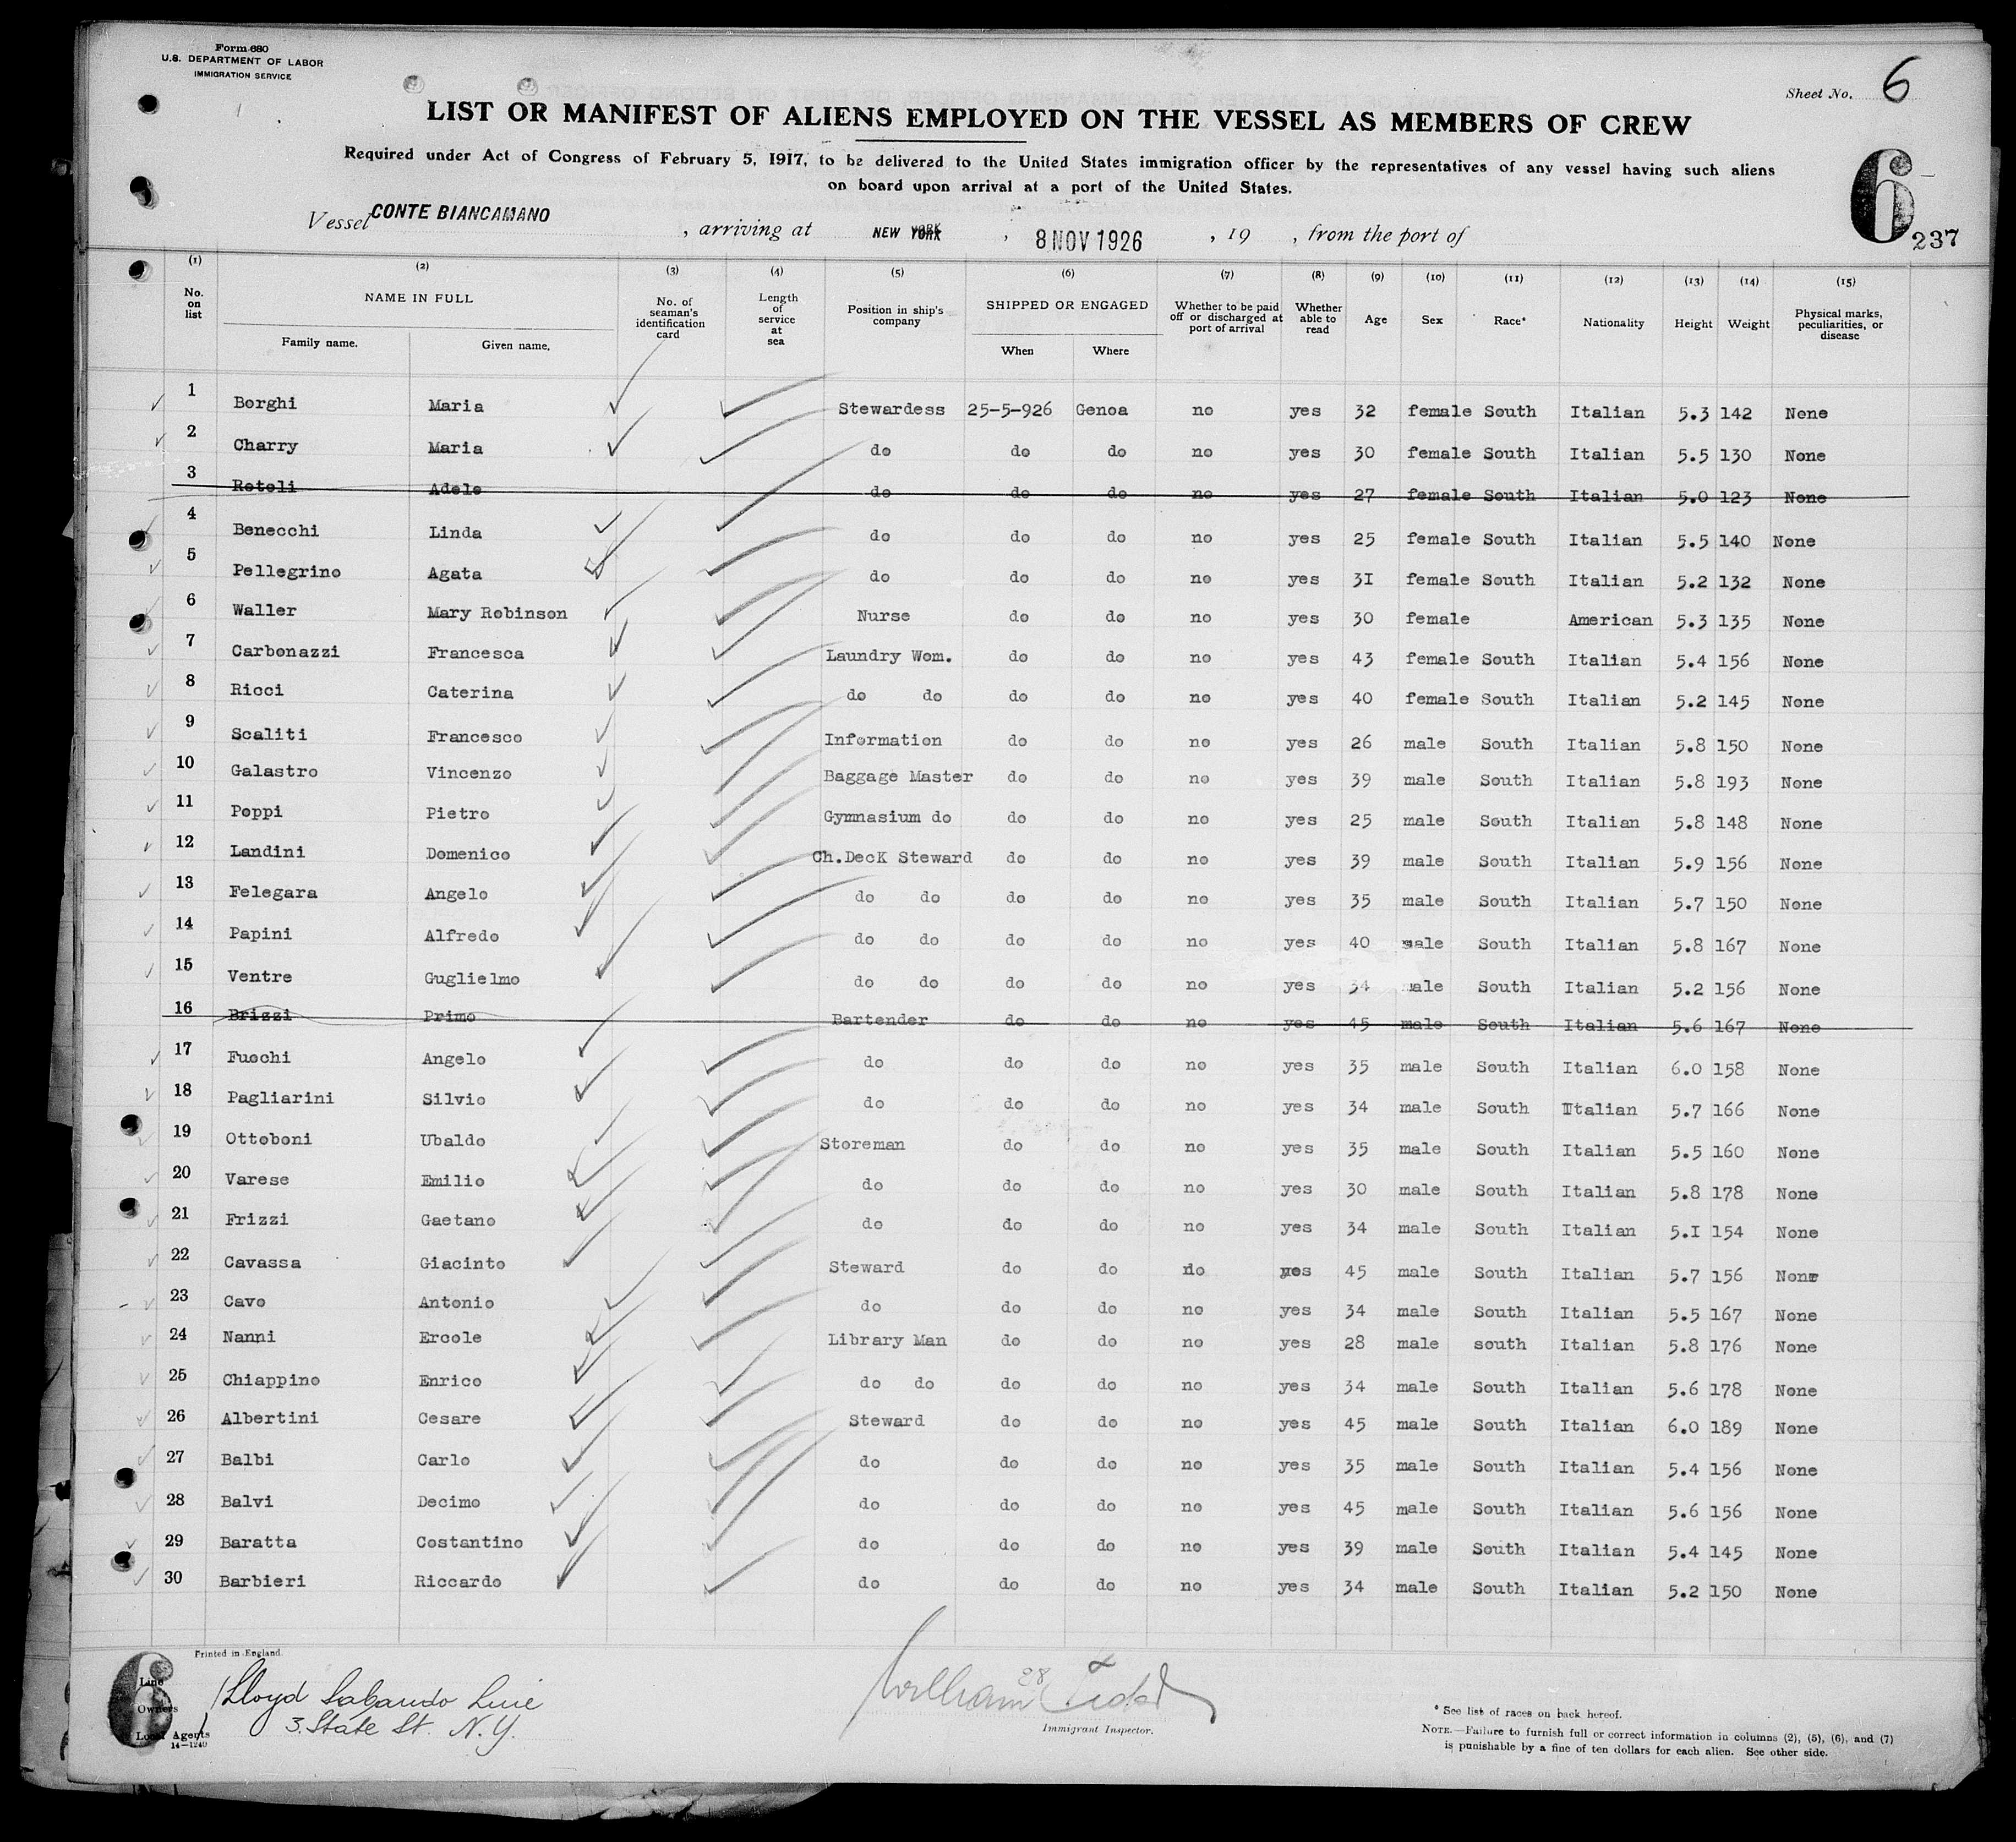 Form 680
U.S. DEPARTMENT OF LABOR
IMMIGRATION SERVICE
Sheet No. 6
LIST OR MANIFEST OF ALIENS EMPLOYED ON THE VESSEL AS MEMBERS OF CREW
Required under Act of Congress of February 5, 1917, to be delivered to the United States immigration officer by the representatives of any vessel having such aliens
on board upon arrival at a port of the United States.
6
237
Vessel CONTE BIANCAMANO, arriving at NEW YORK, 8 NOV 1926, 19 , from the port of
(1) (2) (3) (4) (5) (6) (7) (8) (9) (10) (11) (12) (13) (14) (15)
No. on list NAME IN FULL Family name. Given name. No. of seaman's identification card Length of service at sea Position in ship's company SHIPPED OR ENGAGED When Where Whether to be paid off or discharged at port of arrival Whether able to read Age Sex Race* Nationality Height Weight Physical marks, peculiarities, or disease
1 Borghi Maria Stewardess 25-5-926 Genoa no yes 32 female South Italian 5.3 142 None
2 Charry Maria do do do no yes 30 female South Italian 5.5 130 None
3 Roteli Adele do do do no yes 27 female South Italian 5.0 123 None
4 Benecchi Linda do do do no yes 25 female South Italian 5.5 140 None
5 Pellegrino Agata do do do no yes 31 female South Italian 5.2 132 None
6 Waller Mary Robinson Nurse do do no yes 30 female American 5.3 135 None
7 Carbonazzi Francesca Laundry Wom. do do no yes 43 female South Italian 5.4 156 None
8 Ricci Caterina do do do do no yes 40 female South Italian 5.2 145 None
9 Scaliti Francesco Information do do no yes 26 male South Italian 5.8 150 None
10 Galastro Vincenzo Baggage Master do do no yes 39 male South Italian 5.8 193 None
11 Poppi Pietro Gymnasium do do do no yes 25 male South Italian 5.8 148 None
12 Landini Domenico Ch.Deck Steward do do no yes 39 male South Italian 5.9 156 None
13 Felegara Angelo do do do do no yes 35 male South Italian 5.7 150 None
14 Papini Alfredo do do do do no yes 40 male South Italian 5.8 167 None
15 Ventre Guglielmo do do do do no yes 34 male South Italian 5.2 156 None
16 Brizzi Primo Bartender do do no yes 45 male South Italian 5.6 167 None
17 Fuochi Angelo do do do no yes 35 male South Italian 6.0 158 None
18 Pagliarini Silvio do do do no yes 34 male South Italian 5.7 166 None
19 Ottoboni Ubaldo Storeman do do no yes 35 male South Italian 5.5 160 None
20 Varese Emilio do do do no yes 30 male South Italian 5.8 178 None
21 Frizzi Gaetano do do do no yes 34 male South Italian 5.I 154 None
22 Cavassa Giacinto Steward do do no yes 45 male South Italian 5.7 156 None
23 Cavo Antonio do do do no yes 34 male South Italian 5.5 167 None
24 Nanni Ercole Library Man do do no yes 28 male south Italian 5.8 176 None
25 Chiappino Enrico do do do do no yes 34 male South Italian 5.6 178 None
26 Albertini Cesare Steward do do no yes 45 male South Italian 6.0 189 None
27 Balbi Carlo do do do no yes 35 male South Italian 5.4 156 None
28 Balvi Decimo do do do no yes 45 male South Italian 5.6 156 None
29 Baratta Costantino do do do no yes 39 male South Italian 5.4 145 None
30 Barbieri Riccardo do do do no yes 34 male South Italian 5.2 150 None
Printed in England.
6
Line
Owners
Local Agents
14-1240
Lloyd Sabaudo Line
3. State St. N.Y.
28
William
Immigrant Inspector.
* See list of races on back hereof.
NOTE.—Failure to furnish full or correct information in columns (2), (5), (6), and (7)
is punishable by a fine of ten dollars for each alien. See other side.